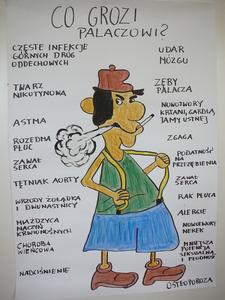 CO GROZI
PALACZOWI?
CZĘSTE INFEKCJE
GÓRNYCH DRÓG
ODDECHOWYCH
TWARZ
NIKOTYNOWA
ASTMA
ROZEDMA
PŁUC
ZAWAŁ
SERCA
TĘTNIAK AORTY
WRZODY ŻOŁĄDKA
I DWUNASTNICY
MIAŻDŻYCA
NACZYŃ
KRWIONOŚNYCH
CHOROBA
WIEŃCOWA
NADCIŚNIENIE
UDAR
MÓZGU
ZĘBY
PALACZA
NOWOTWORY
KRTANI, GARDŁA,
JAMY USTNEJ
ZGAGA
PODATNOŚĆ
NA
PRZEZIĘBIENIA
ZAWAŁ
SERCA
RAK PŁUCA
ALERGIE
NOWOTWORY
NEREK
MNIEJSZA
POTENCJA
SEKSUALNA
I PŁODNOŚĆ
OSTEOPOROZA